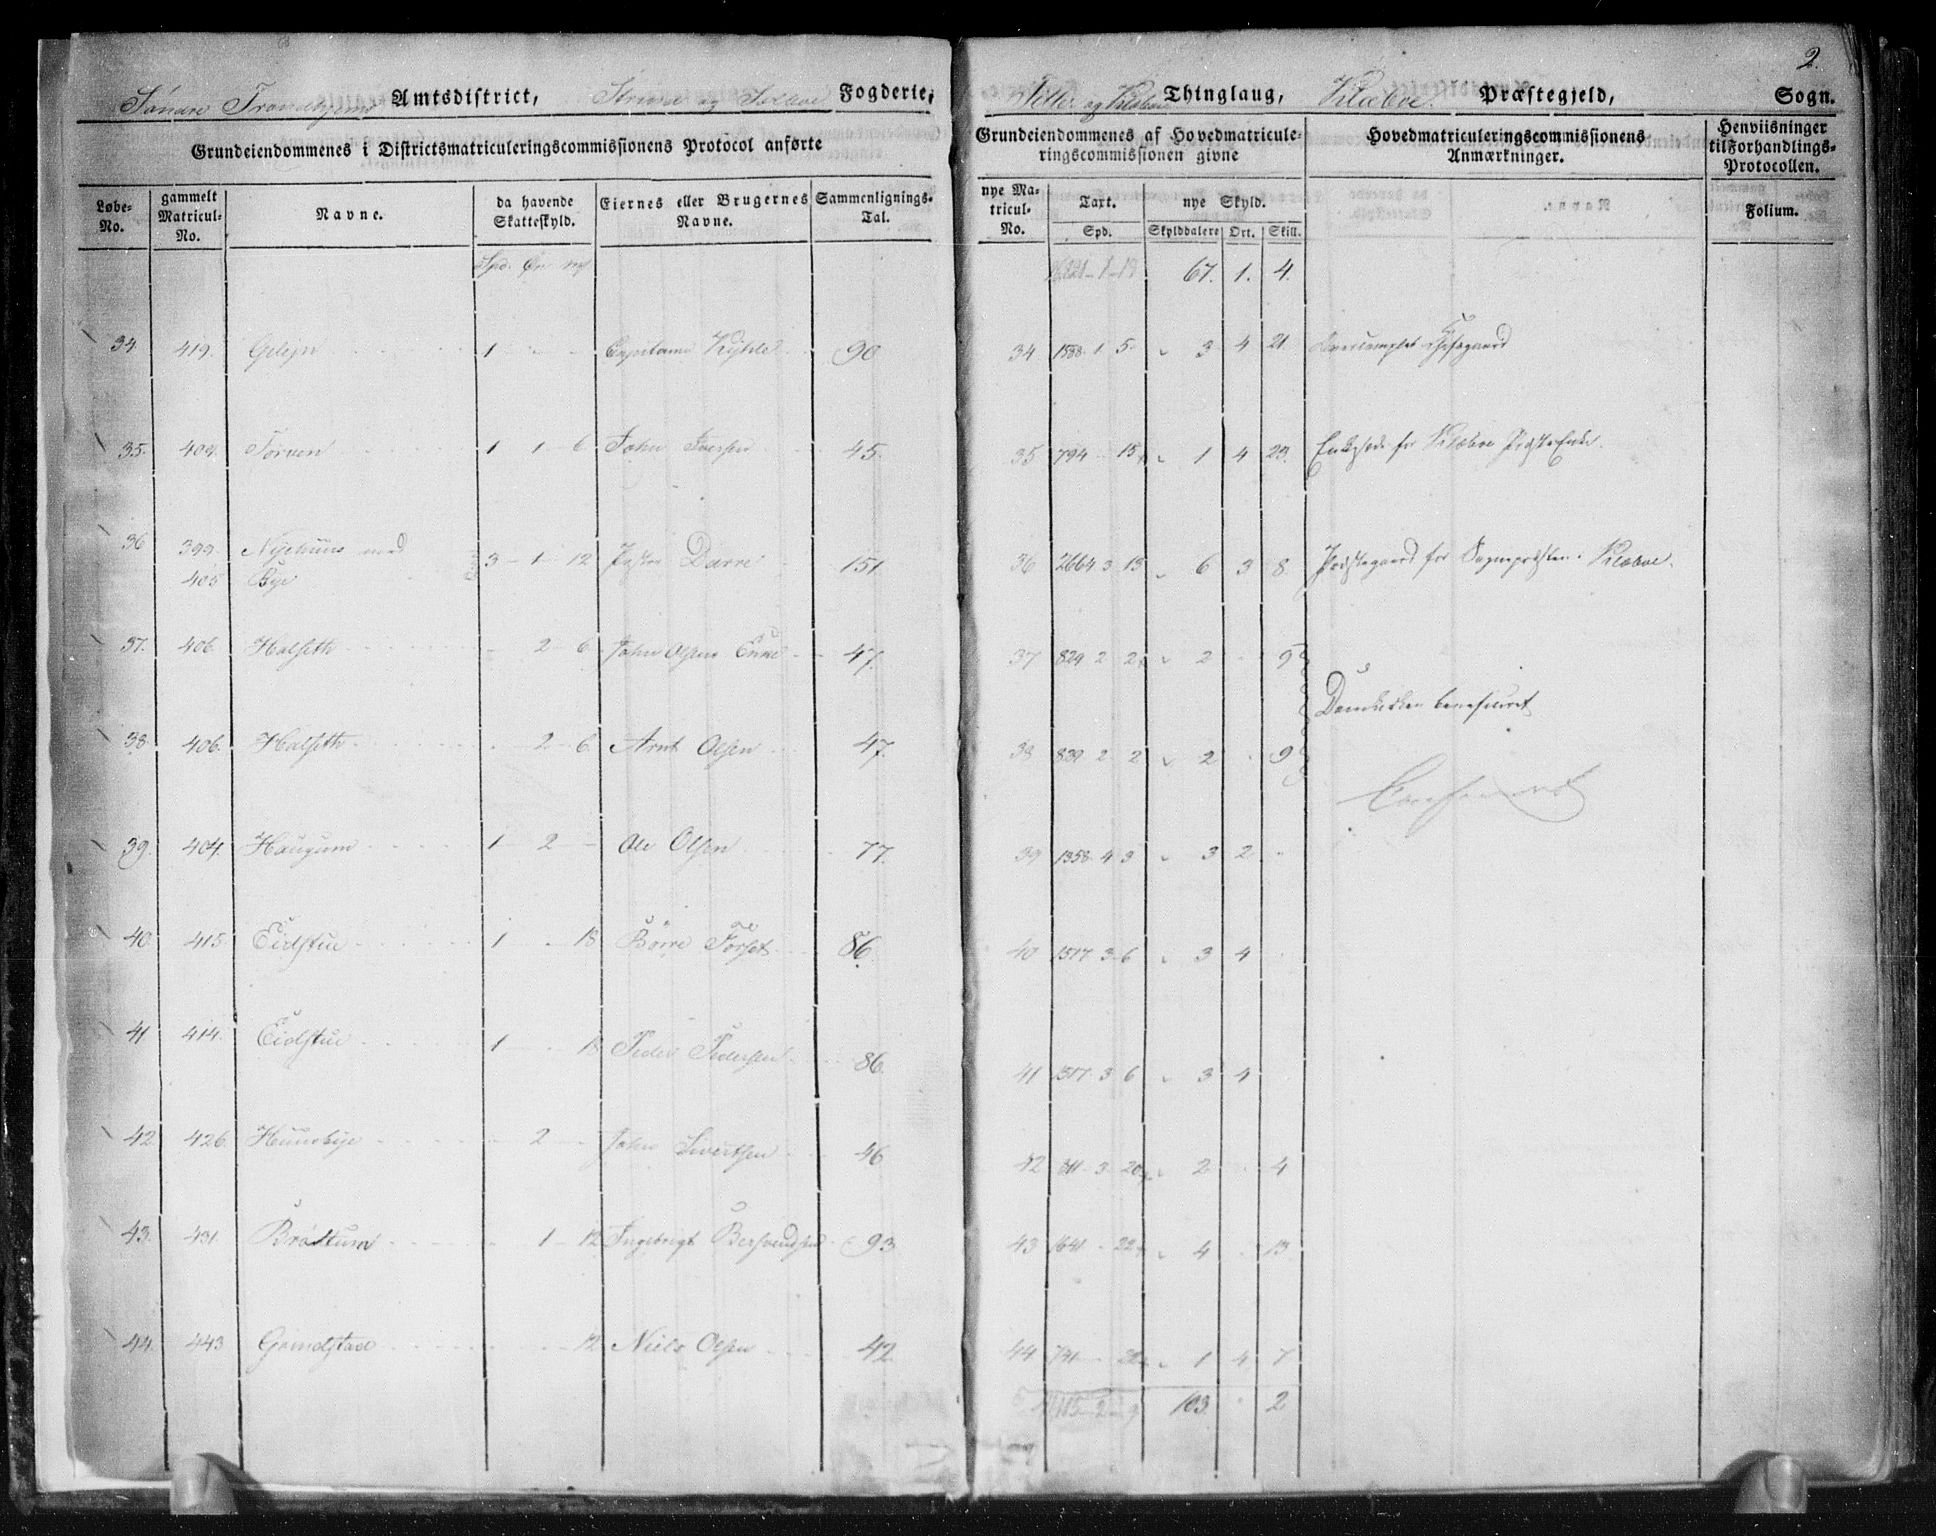 2.
Søndre Trondhjems Amtsdistrict, Strinde og Selboe Fogderie, Tiller og Klæboe Thinglaug, Klæboe Præstegjeld, Sogn.
Grundeiendommenes i Districtsmatriculeringscommissionens Protocol anførte
Grundeiendommenes af Hovedmatriculeringscommissionen givne
Hovedmatriculeringscommissionens Anmærkninger.
Henviisninger til Forhandlings-Protocollen.
Løbe-No. gammelt Matricul-No. Navne. da havende Skatteskyld. Eiernes eller Brugernes Navne. Sammenlignings-Tal. nye Matricul-No. Taxt. nye Skyld. Folium.
Spd. Skylddalere Ort. Skill.
Spd. Ort
67. 1. 4.
34. 419. 1 Capitaine 90 34 1588 1 5. 3 4 21
35. 409. Tørven 1 1 6 John Iversen 45. 35 794 15 1 4 23. Enkesæde for Klæboe
36 399. Nyehuus med 3 1 12 Darre 151 36 2664 3 13 6 3 8 Præstegaard for Sognepræsten i Klæboe.
405 Bye
37. 406 Halseth 2 6 John Olsens Enke 47. 37 829 2 2 2 9
beneficeret
38. 406. Halseth 2 6 Arnt Olsen 47. 38 829 2 2 2 9
39. 404. Haugum 1 2 Ole Olsen 77. 39 1358 4 3 3 2
40 415. Eidstue 1 18 Børre Forset 86. 40 1517 3 6 3 4
41 414. Eidstue 1 18 Peder Pedersen 86. 41 1517 3 6 3 4
42 426 2 John Sivertsen 46 42 811 3 20 2 4
43. 431. Brøttum 1 12 Ingebrigt Bersvendsen 93 43 1641 22 4 13
44. 443 Grindstad 12 Niels Olsen 42 44 741 1 4 7
103. 2